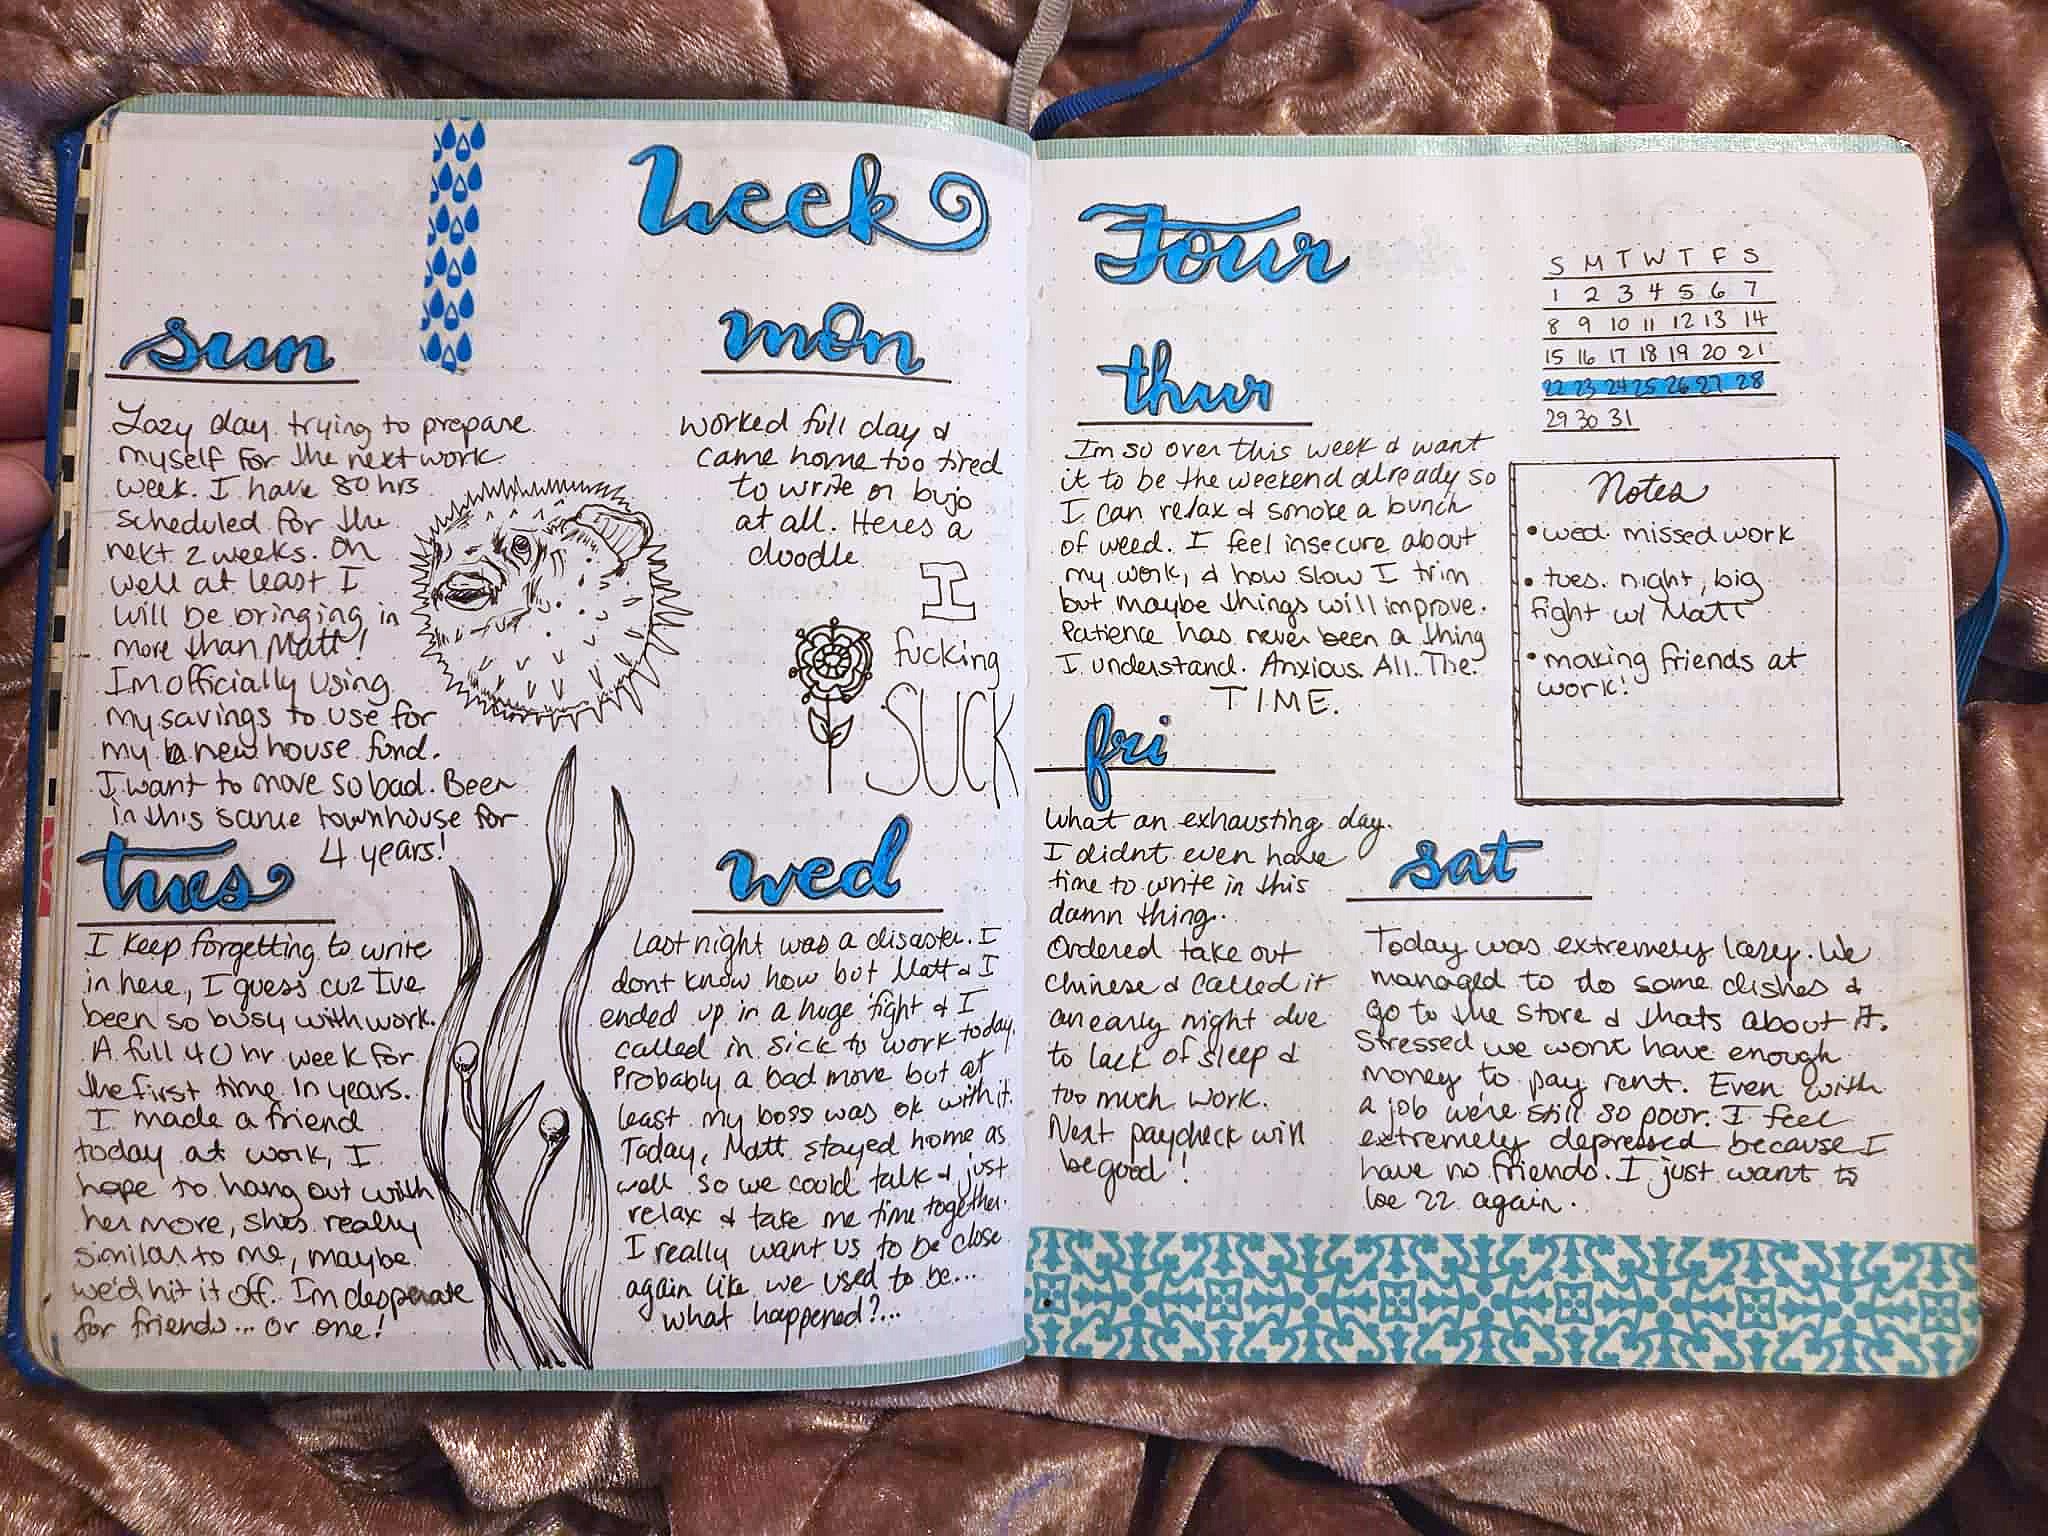 Week
sun
Lazy day trying to prepare
myself for the next work
week. I have 80 hrs
scheduled for the
next 2 weeks. Oh
well at least I
will be bringing in
more than Matt!
Im officially using
my savings to use for
my new house fund.
I want to move so bad. Been
in this same townhouse for
4 years!
mon
worked full day &
came home too tired
to write or bujo
at all. Heres a
doodle.
I
fucking
SUCK
tues
I keep forgetting to write
in here, I guess cuz Ive
been so busy with work.
A full 40 hr week for
the first time in years.
I made a friend
today at work, I
hope to hang out with
her more, shes really
similar to me, maybe
we'd hit it off. Im desperate
for friends... or one!
wed
Last night was a disaster. I
dont know how but Matt & I
ended up in a huge fight & I
called in sick to work today.
Probably a bad move but at
least my boss was ok with it.
Today, Matt stayed home as
well so we could talk & just
relax & take me time together.
I really want us to be close
again like we used to be...
what happened?...
Four
thur
Im so over this week & want
it to be the weekend already so
I can relax & smoke a bunch
of weed. I feel insecure about
my work, & how slow I trim
but maybe things will improve.
Patience has never been a thing
I understand. Anxious. All. The.
TIME.
S M T W T F S
1 2 3 4 5 6 7
8 9 10 11 12 13 14
15 16 17 18 19 20 21
22 23 24 25 26 27 28
29 30 31
Notes
• wed. missed work
• tues. night, big
fight w/ Matt
• making friends at
work!
fri
What an exhausting day.
I didnt even have
time to write in this
damn thing.
Ordered take out
Chinese & called it
an early night due
to lack of sleep &
too much work.
Next paycheck will
be good!
sat
Today was extremely lazy. We
managed to do some dishes &
go to the store & thats about it.
Stressed we wont have enough
money to pay rent. Even with
a job we're still so poor. I feel
extremely depressed because I
have no friends. I just want to
be 22 again.